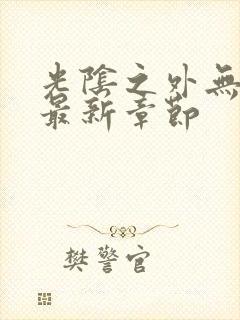 光陰之外無
最新章節
樊警官